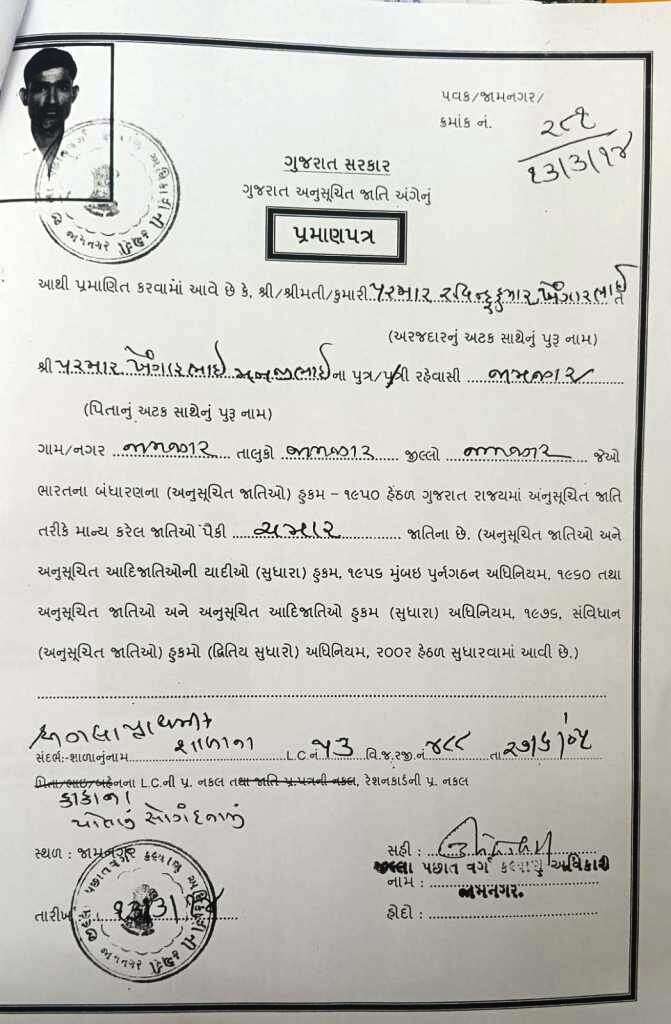 પવક/જામનગર/
ક્રમાંક નં. ૨૮૧
૧૩/૩/૧૪
ગુજરાત સરકાર
ગુજરાત અનુસૂચિત જાતિ અંગેનું
પ્રમાણપત્ર
આથી પ્રમાણિત કરવામાં આવે છે કે, શ્રી/શ્રીમતી/કુમારી પરમાર રવિન્દ્રકુમાર ખેંગારભાઈ તે
(અરજદારનું અટક સાથેનું પુરૂ નામ)
શ્રી પરમાર ખેંગારભાઈ મનજીભાઈ ના પુત્ર/પુત્રી રહેવાસી જામનગર
(પિતાનું અટક સાથેનું પુરૂ નામ)
ગામ/નગર જામનગર તાલુકો જામનગર જીલ્લો જામનગર જેઓ
ભારતના બંધારણના (અનુસૂચિત જાતિઓ) હુકમ – ૧૯૫૦ હેઠળ ગુજરાત રાજયમાં અનુસૂચિત જાતિ
તરીકે માન્ય કરેલ જાતિઓ પૈકી ચમાર જાતિના છે. (અનુસૂચિત જાતિઓ અને
અનુસૂચિત આદિજાતિઓની યાદીઓ (સુધારા) હુકમ, ૧૯૫૬ મુંબઇ પુર્નગઠન અધિનિયમ, ૧૯૬૦ તથા
અનુસૂચિત જાતિઓ અને અનુસૂચિત આદિજાતિઓ હુકમ (સુધારા) અધિનિયમ, ૧૯૭૬, સંવિધાન
(અનુસૂચિત જાતિઓ) હુકમો (દ્વિતિય સુધારો) અધિનિયમ, ૨૦૦૨ હેઠળ સુધારવામાં આવી છે.)
સંદર્ભ:-શાળાનુંનામ શાળાના L.C નં ૫૩ વિ.જ.રજી.નં ૪૮૮ તા
પિતા/ભાઇ/બહેનના L.C.ની પ્ર. નકલ તથા જાતિ પ્ર.પત્રની નકલ, રેશનકાર્ડની પ્ર. નકલ
કાકાના
પોતાનું સોગંદનામું
સ્થળ : જામનગર
સહી :
જીલ્લા પછાત વર્ગ કલ્યાણ અધિકારી
નામ :
જામનગર.
તારીખ : ૧૩/૩/૧૪
હોદો :